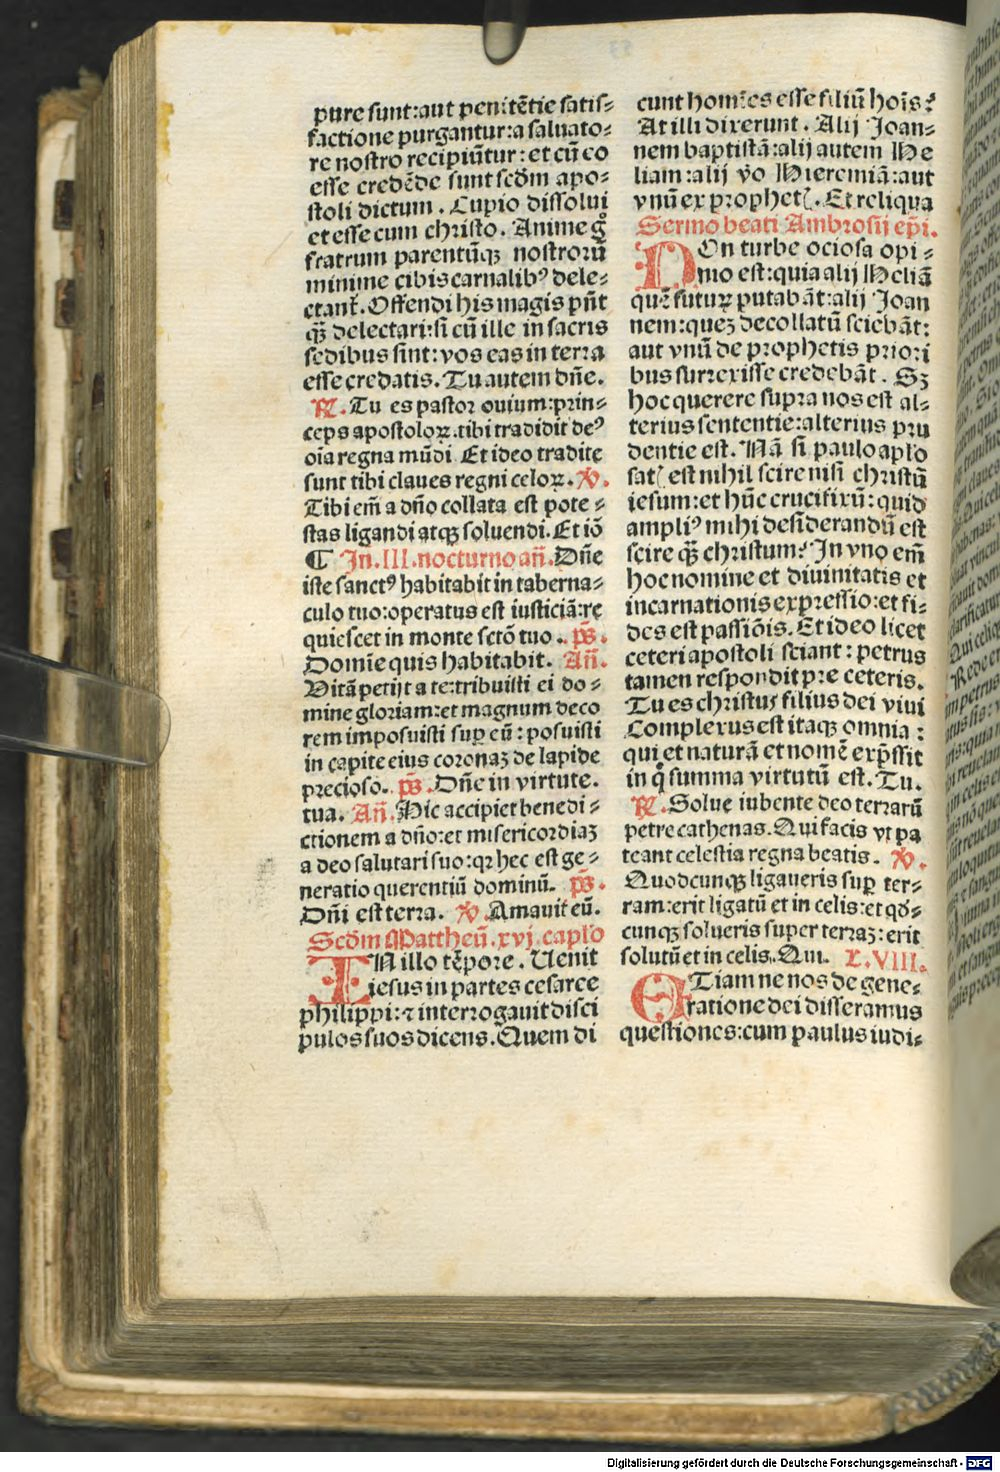 pure sunt:aut penitētie satis⸗
factione purgantur:a saluato⸗
re nostro recipiūtur:et cū eo
esse credēde sunt scd̄m apo⸗
stoli dictum. Cupio dissolui
et esse cum christo. Anime g̊
fratrum parentūqꝫ nostrorū
minime cibis carnalibꝰ dele⸗
ctant᷑. Offendi his magis pn̄t
qꝫ̄ delectari:si cū ille in sacris
sedibus sint:vos eas in terra
esse credatis. Tu autem dn̄e.
℟. Tu es pastor ouium:prin⸗
ceps apostoloꝝ.tibi tradidit deꝰ
oīa regna mūdi Et ideo tradite
sunt tibi claues regni celoꝝ. ℣.
Tibi em̄ a dn̄o collata est pote⸗
stas ligandi atqꝫ soluendi. Et iō
¶ In.III.nocturno an̄. Dn̄e
iste sanctꝰ habitabit in taberna⸗
culo tuo:operatus est iusticiā:re
quiescet in monte sctō tuo. ps̄.
Domīe quis habitabit. An̄.
Vitā petijt a te:tribuisti ei do⸗
mine gloriam:et magnum deco
rem imposuisti suꝑ eū: posuisti
in capite eius coronaꝫ de lapide
precioso. ps̄. Dn̄e in virtute.
tua. An̄. Hic accipiet benedi⸗
ctionem a dn̄o:et misericordiaꝫ
a deo salutari suo:qꝛ hec est ge⸗
neratio querentiū dominū. ps̄.
Dn̄i est terra. ℣. Amauit eū.
Scd̄m Mattheū.xvj.caplō
IN illo tēpore. Uenit
iesus in partes cesaree
philippi:⁊ interrogauit disci
pulos suos dicens. Quem di
cunt homīes esse filiū hoīs?
At illi dixerunt. Alij Joan⸗
nem baptistā:alij autem He
liam:alij v̊o Hieremiā:aut
vnū ex prophetꝭ. Et reliqua
Sermo beati Ambrosij ep̄i.
NOn turbe ociosa opi⸗
nio est:quia alij Heliā
quē futuꝝ putabāt:alij Joan
nem:queꝫ decollatū sciebāt:
aut vnū de prophetis priori
bus surrexisse credebāt. Sꝫ
hoc querere supra nos est al⸗
terius sententie:alterius pru
dentie est. Nā si paulo aplō
satꝭ est nihil scire nisi christū
iesum:et hūc crucifixū:quid
ampliꝰ mihi desiderandū est
scire qꝫ̄ christum? In vno em̄
hoc nomine et diuinitatis et
incarnationis expressio:et fi⸗
des est passiōis. Et ideo licet
ceteri apostoli sciant: petrus
tamen respondit pre ceteris.
Tu es christus filius dei viui
Complexus est itaqꝫ omnia:
qui et naturā et nomē exp̄ssit
in q̊ summa virtutū est. Tu.
℟. Solue iubente deo terrarū
petre cathenas. Qui facis vt pa
teant celestia regna beatis. ℣.
Quodcunqꝫ ligaueris suꝑ ter⸗
ram:erit ligatū et in celis:et qd̊⸗
cunqꝫ solueris super terraꝫ:erit
solutū et in celis. Qui. L.VIII.
ETiam ne nos de gene⸗
ratione dei disseramus
questiones:cum paulus iudi⸗
Digitalisierung gefördert durch die Deutsche Forschungsgemeinschaft - DFG